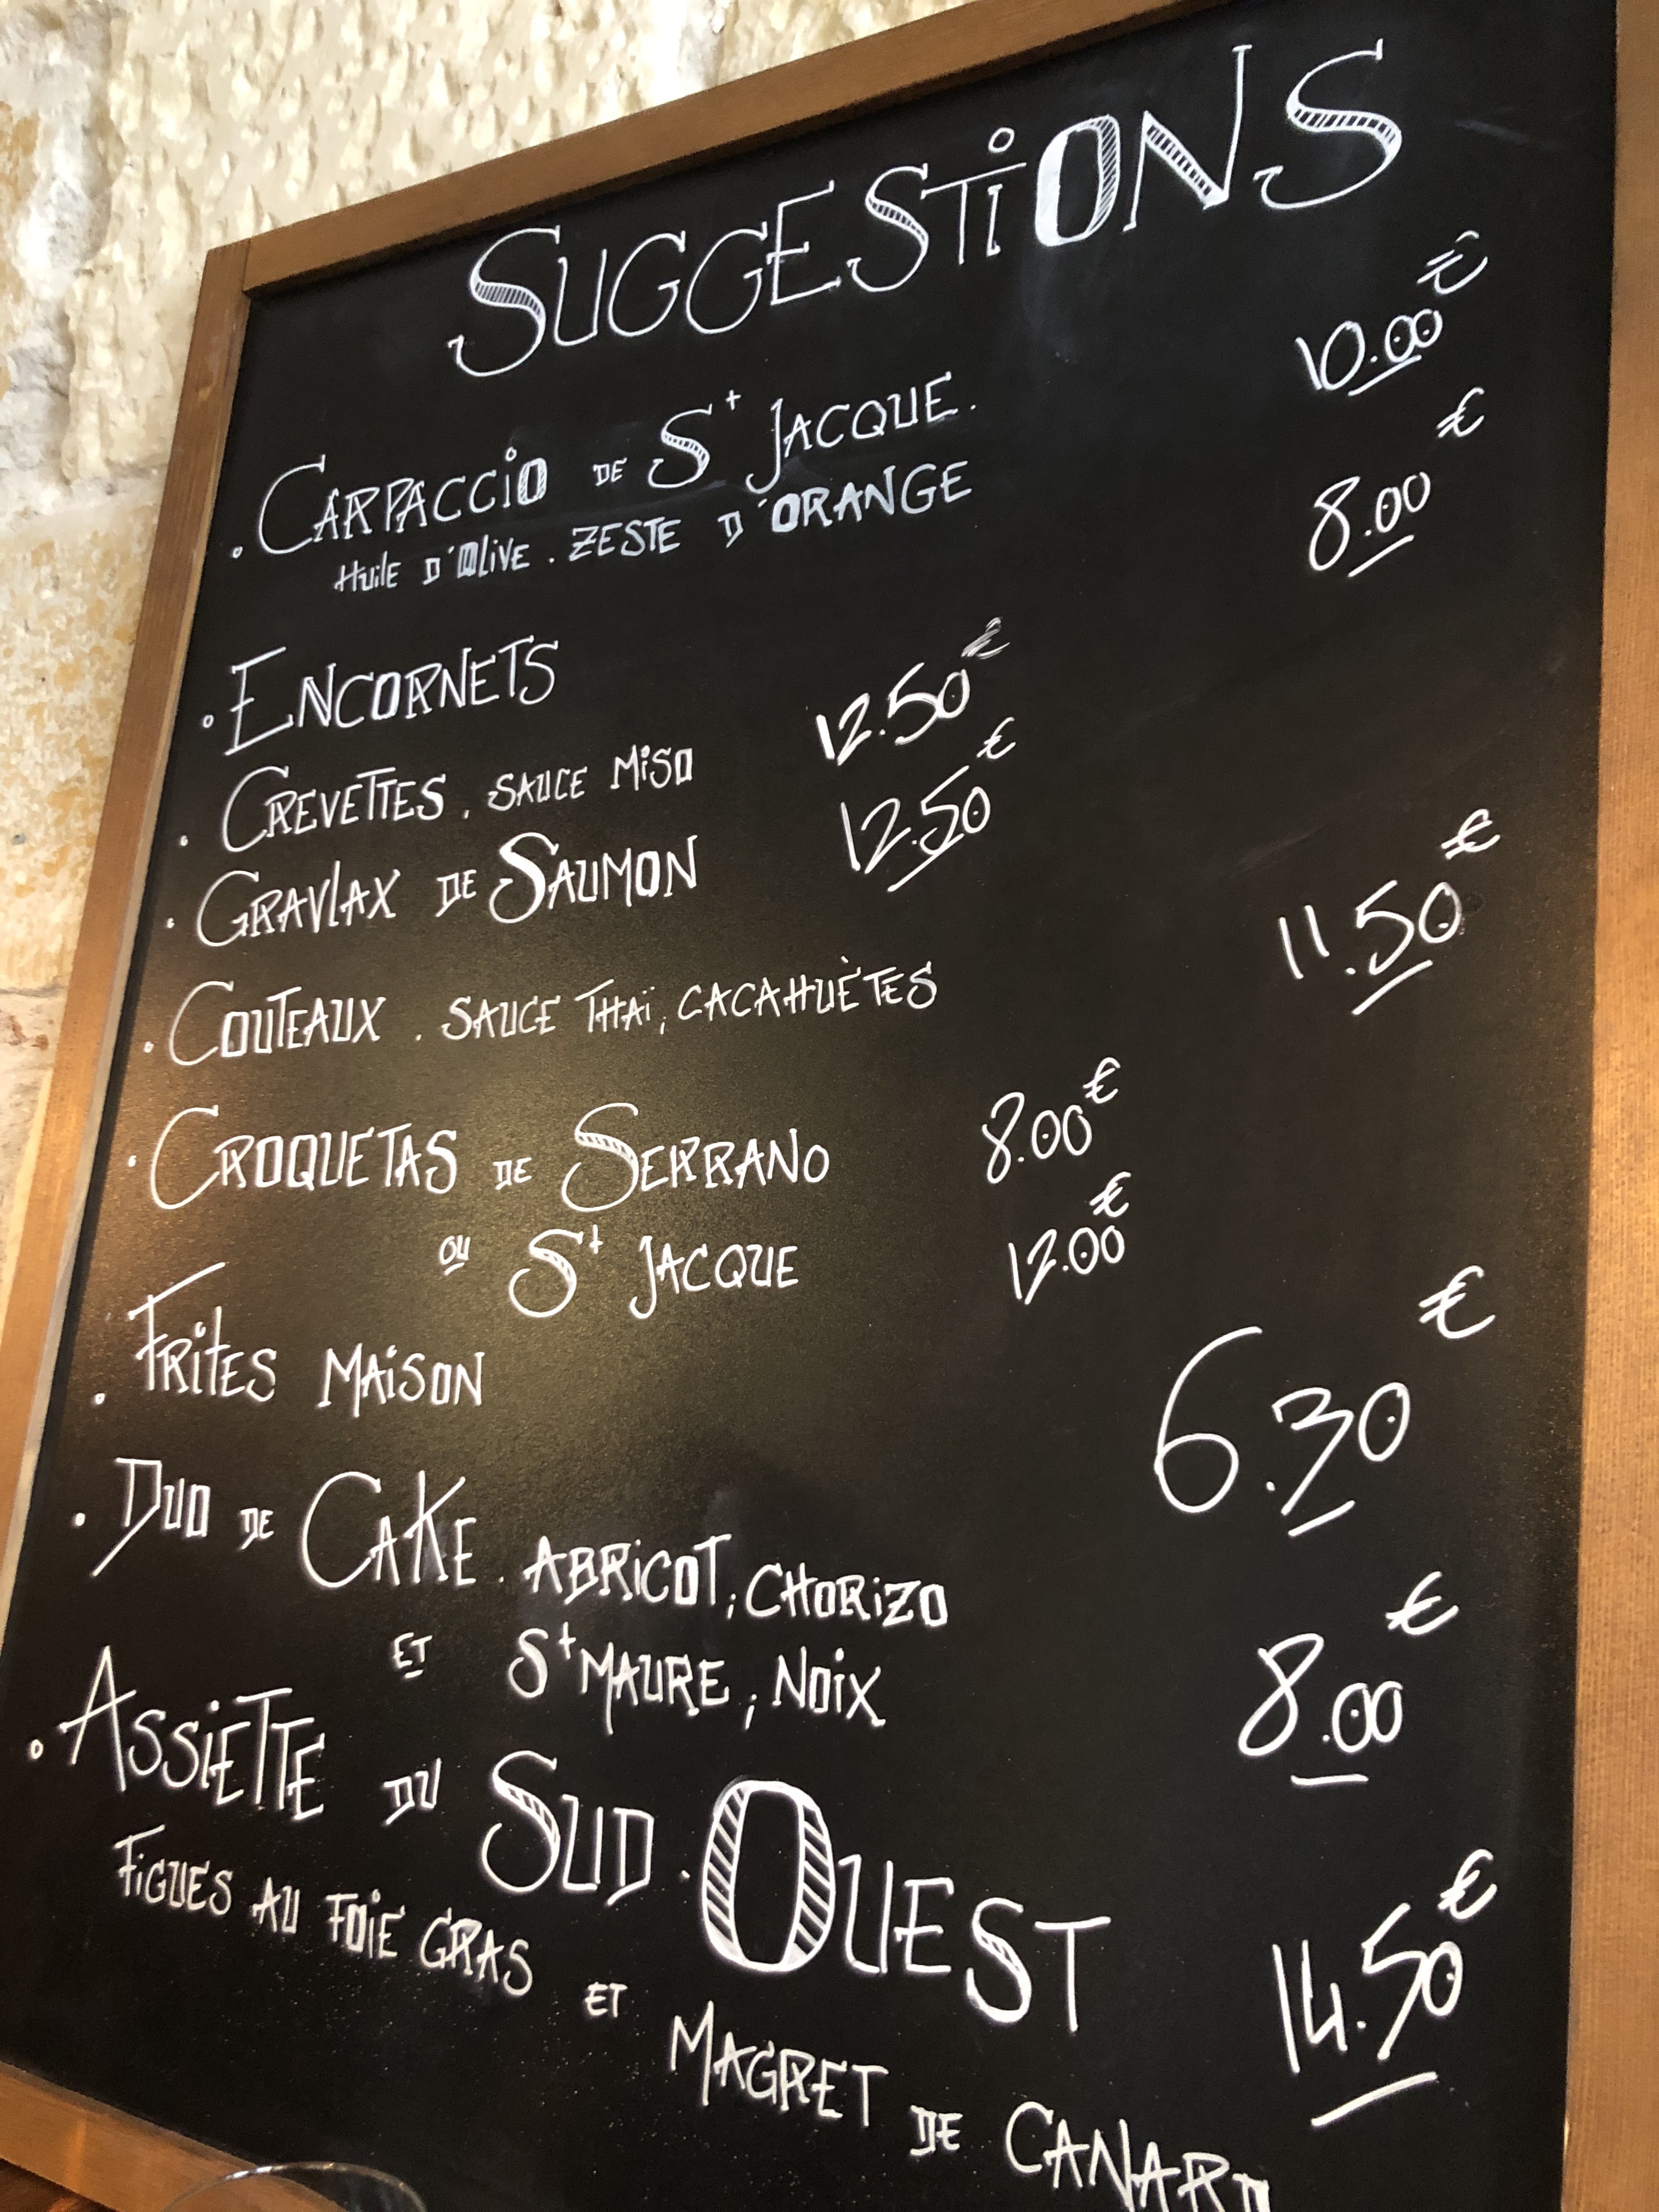 SUGGESTIONS
. CARPACCIO DE St JACQUE. 10.00€
HUILE D'OLIVE. ZESTE D'ORANGE
. ENCORNETS 8.00€
. CREVETTES. SAUCE MISO 12.50€
. GRAVLAX DE SAUMON 12.50€
. COUTEAUX. SAUCE THAÏ, CACAHUÈTES 11.50€
. CROQUETAS DE SERRANO 8.00€
OU St JACQUE 12.00€
. FRITES MAISON 6.30€
. DUO DE CAKE. ABRICOT, CHORIZO
ET St MAURE, NOIX 8.00€
. ASSIETTE DU SUD.OUEST 14.50€
FIGUES AU FOIE GRAS ET MAGRET DE CANARD